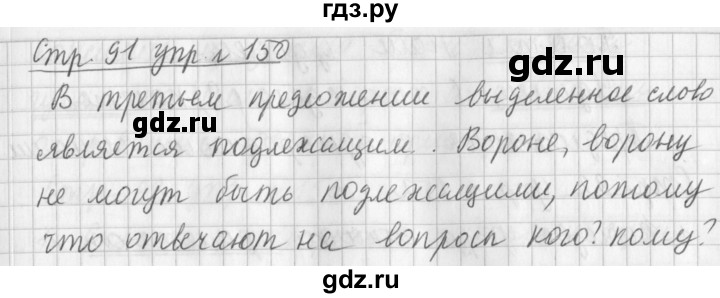 гдз.ру
Стр. 91 упр. 150
gdz.ru
В третьем предложении выделенное слово
gdz.ru
является подлежащим. Вороне, ворону
не могут быть подлежащими, потому
что отвечают на вопросы кого? кому?
gdz.ru